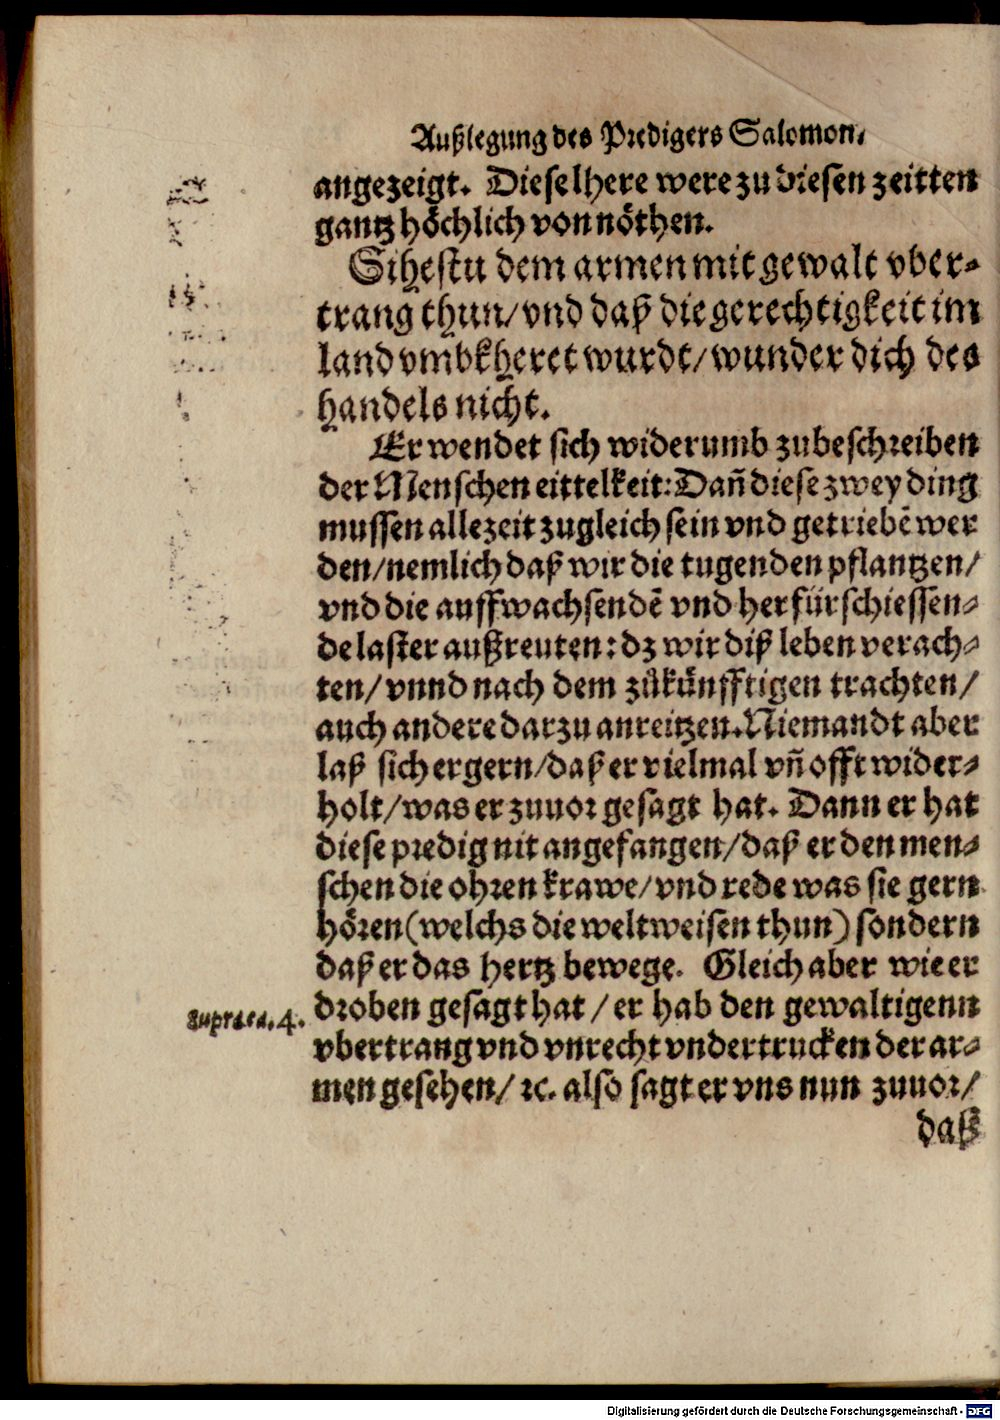 Außlegung des Predigers Salomon.
angezeigt. Diese lhere were zu diesen zeitten
gantz höchlich von nöthen.
Sihestu dem armen mit gewalt vber-
trang thun/vnd daß die gerechtigkeit im
land vmbkheret wurdt/wunder dich des
handels nicht.
Er wendet sich widerumb zubeschreiben
der Menschen eittelkeit: Dañ diese zwey ding
mussen allezeit zugleich sein vnd getriebē wer
den/nemlich daß wir die tugenden pflantzen/
vnd die auffwachsendē vnd herfürschiessen-
de laster außreuten: dz wir diß leben verach-
ten/vnnd nach dem zůkünfftigen trachten/
auch andere darzu anreitzen. Niemandt aber
laß sich ergern/daß er vielmal vñ offt wider-
holt/was er zuuor gesagt hat. Dann er hat
diese predig nit angefangen/daß er den men-
schen die ohren krawe/vnd rede was sie gern
hören (welchs die weltweisen thun) sondern
daß er das hertz bewege. Gleich aber wie er
supra ca. 4.
droben gesagt hat/er hab den gewaltigenn
vbertrang vnd vnrecht vndertrucken der ar-
men gesehen/ꝛc. also sagt er vns nun zuuor/
daß
Digitalisierung gefördert durch die Deutsche Forschungsgemeinschaft - DFG